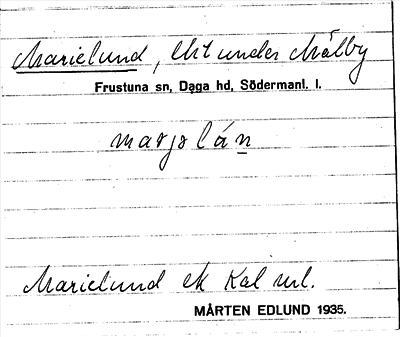 Marielund, Utl under Målby
Frustuna sn, Daga hd, Södermanl. l.
marjolán
Marielund ek Kal url.
MÅRTEN EDLUND 1935.